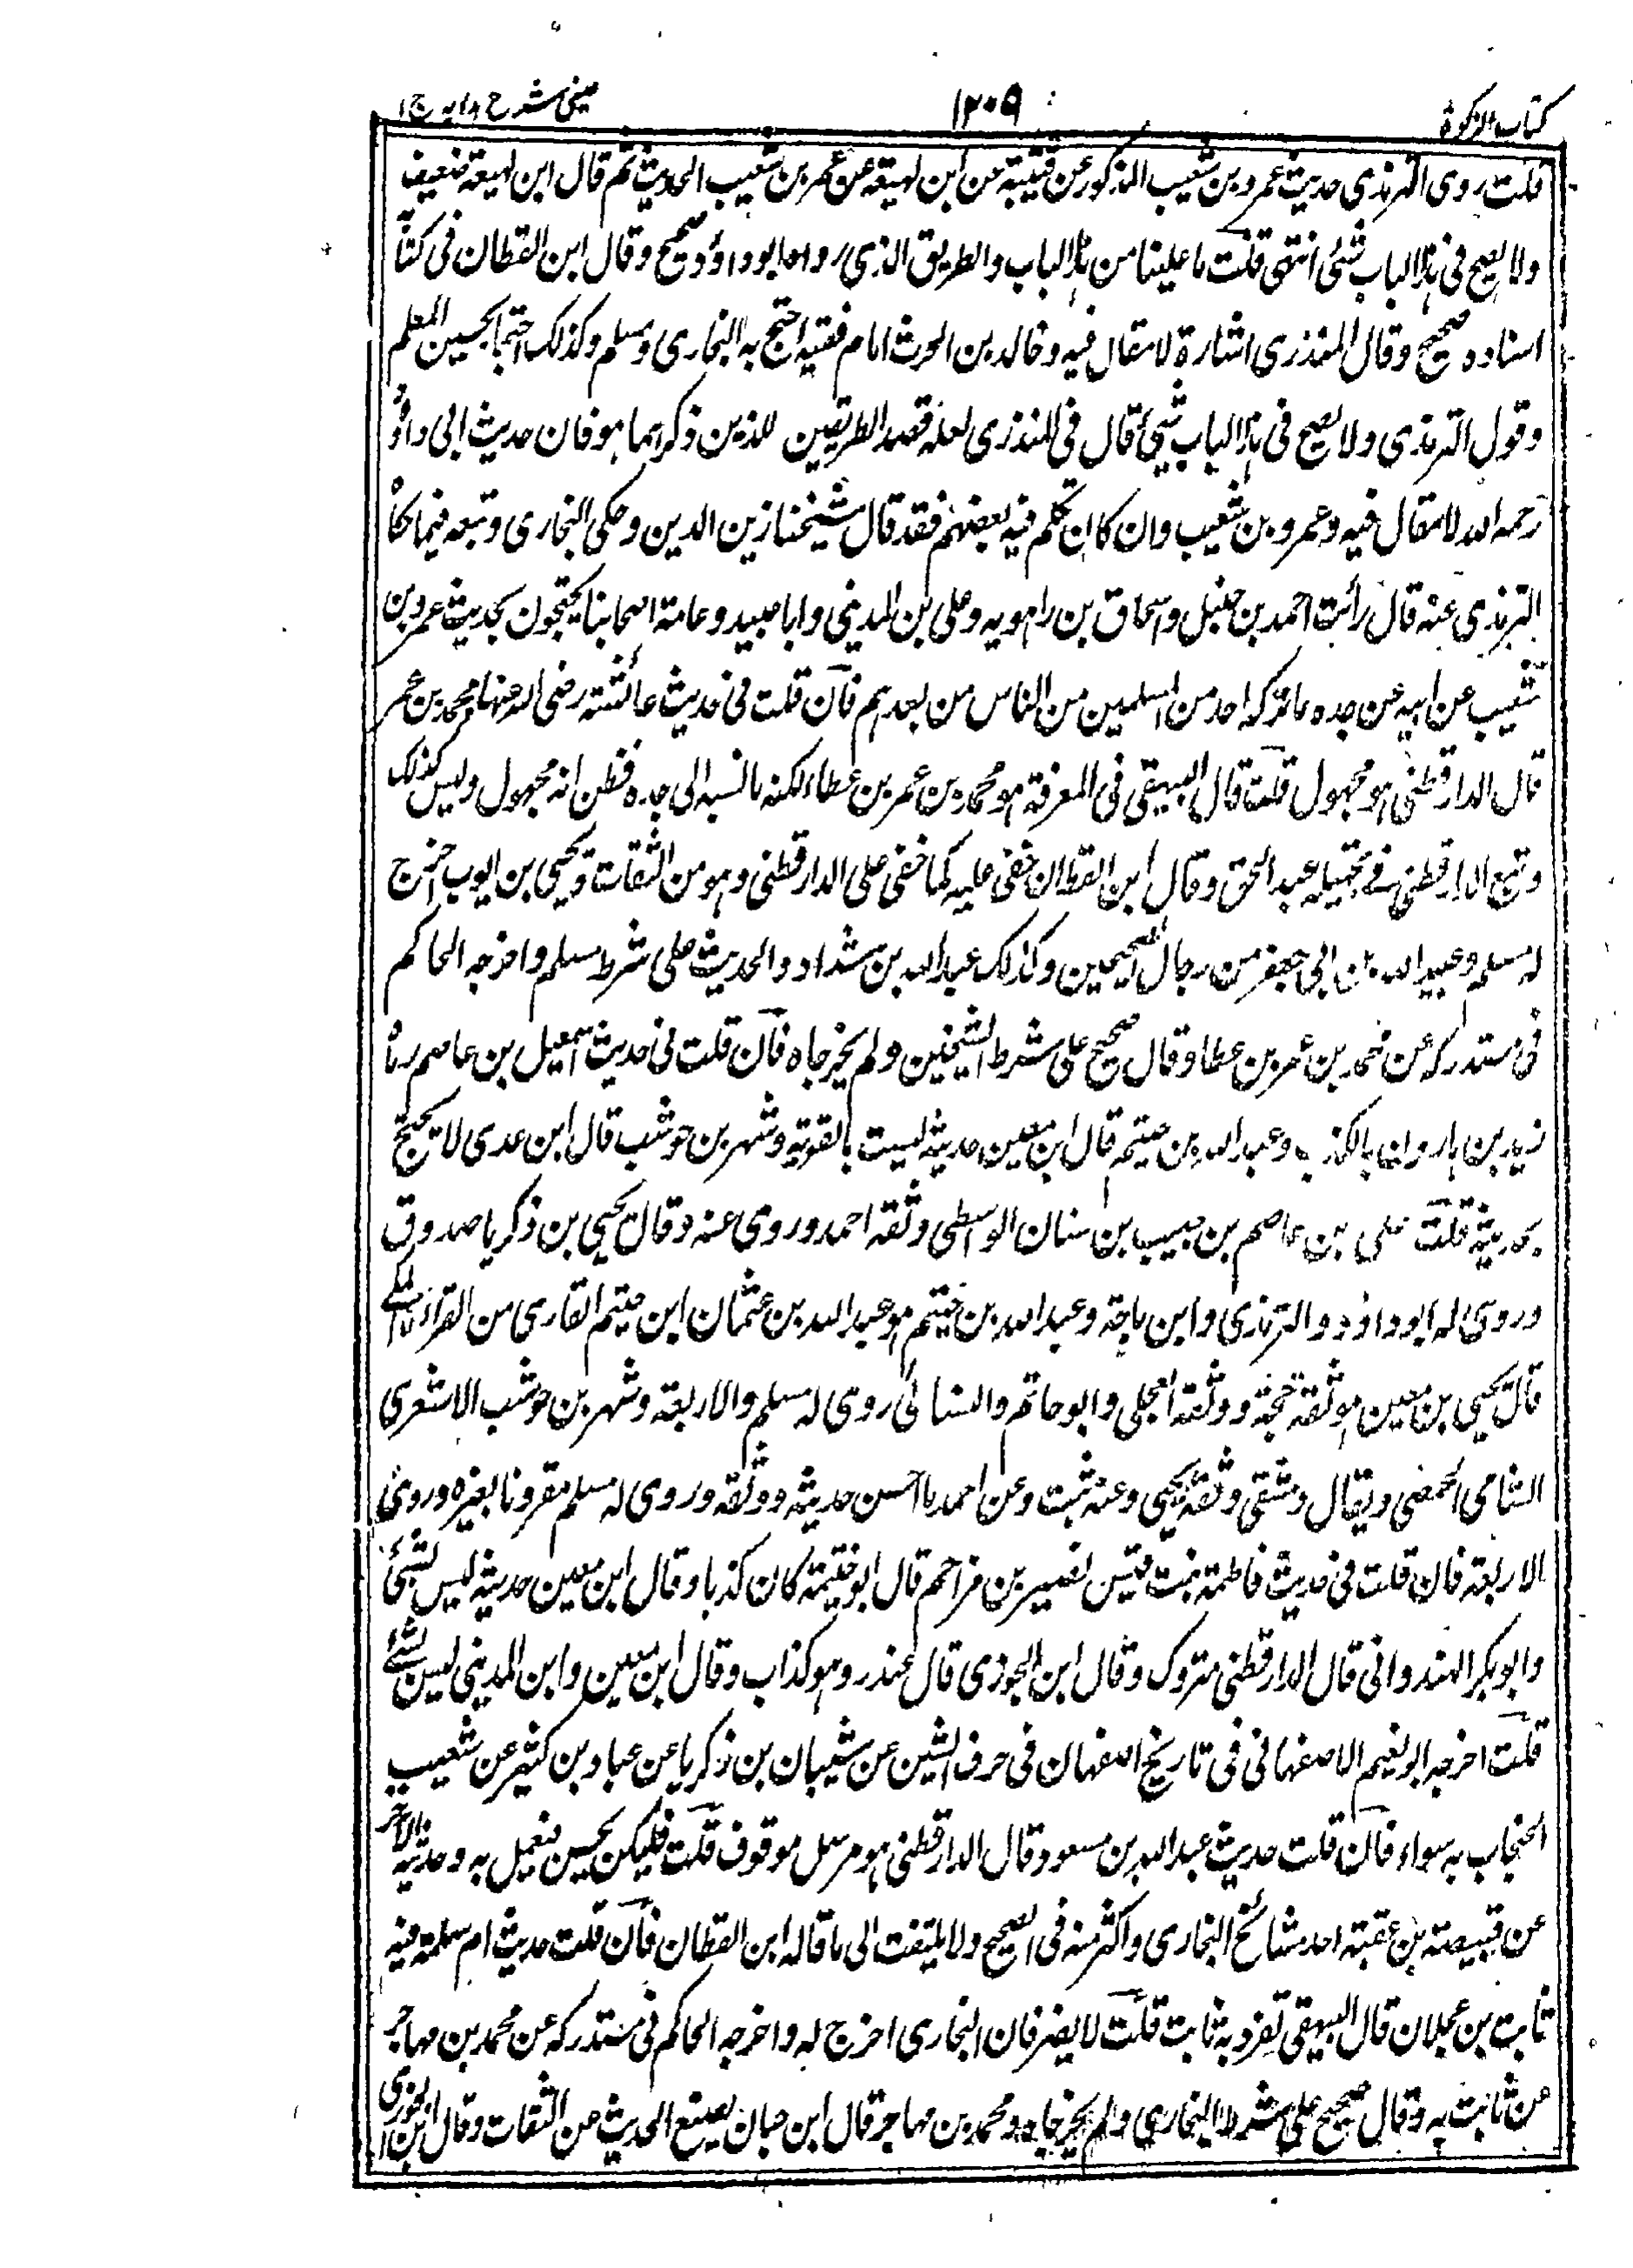 كتاب الزكوة
١٢٠٩
عينى شرح هدايه ج١
قلت روى الترمذى حديث عمرو بن شعيب المذكور عن قتيبة عن ابن لهيعة عن عمر بن شعيب الحديث ثم قال ابن لهيعة ضعيف
ولا يصح فى هذا الباب شئ انتهى قلت ما علينا من هذا الباب والطريق الذى رواها ابو داؤد صحيح وقال ابن القطان فى كتابه
اسناده صحيح وقال المنذرى اشارة لا مقال فيه وخالد بن الحرث امام فقيه احتج به البخارى ومسلم وكذلك احتجا بحسين المعلم
وقول الترمذى ولا يصح فى هذا الباب شئ قال فى المنذرى لعله قصد الطريقين للذين ذكرهما هو فان حديث ابى داؤد
رحمه الله لا مقال فيه وعمرو بن شعيب وان كان تكلم فيه بعضهم فقد قال شيخنا زين الدين وحكى البخارى وتبعه فيما حكاه
الترمذى عنه قال رأيت احمد بن حنبل واسحاق بن راهويه وعلى بن المدينى وابا عبيد وعامة اصحابنا يحتجون بحديث عمرو بن
شعيب عن ابيه عن جده ما تركه احد من المسلمين من الناس من بعدهم فان قلت فى حديث عائشة رضى الله عنها محمد بن عمر
قال الدارقطنى هو مجهول قلت قال البيهقى فى المعرفة هو محمد بن عمر بن عطاء لكنه ما نسبه الى جده فظن انه مجهول وليس كذلك
وتبع الدارقطنى فى تجهيله عبد الحق وقال ابن القطان خفى عليه كما خفى على الدارقطنى وهو من الثقات ويحيى بن ايوب اخرج
له مسلم وعبيد الله بن ابى جعفر من رجال الصحيحين وكذلك عبد الله بن شداد والحديث على شرط مسلم واخرجه الحاكم
فى مستدركه عن محمد بن عمر بن عطا وقال صحيح على شرط الشيخين ولم يخرجاه فان قلت فى حديث اسمعيل بن عاصم رماه
زيد بن هارون بالكذب وعبد الله بن خيثم قال ابن معين حديثه ليست بالقوية وشهر بن حوشب قال ابن عدى لا يحتج
بحديثه قلت على بن عاصم بن حبيب بن سنان الواسطى وثقه احمد وروى عنه وقال يحيى بن ذكريا صدوق
وروى له ابو داؤد والترمذى وابن ماجة وعبد الله بن خيثم هو عبد الله بن عثمان ابن خيثم القارى من القراء المكى
قال يحيى بن معين هو ثقة حجة ووثقه العجلى وابو حاتم والنسائى روى له مسلم والاربعة وشهر بن حوشب الاشعرى
الشامى الحمصى ويقال دمشقى وثقه يحيى وعنه ثبت وعن احمد ما احسن حديثه ووثقه وروى له مسلم مقرونا بغيره وروى
الاربعة فان قلت فى حديث فاطمة بنت قيس نصير بن مزاحم قال ابو خيثمة كان كذبا وقال ابن معين حديثه ليس بشئ
وابو بكر الهندوانى قال الدارقطنى متروك وقال ابن الجوزى قال غندر وهو كذاب وقال ابن معين وابن المدينى ليس بشئ
قلت اخرجه ابو نعيم الاصفهانى فى تاريخ اصفهان فى حرف الشين عن شيبان بن زكريا عن عباد بن كثير عن شعيب
الحبحاب به سواء فان قلت حديث عبد الله بن مسعود قال الدارقطنى هو مرسل موقوف قلت فليكن بحسين فيعمل به وحديثه الآخر
عن قبيصة بن عقبة احد مشائخ البخارى واكثر منه فى الصحيح ولا يلتفت الى ما قاله ابن القطان فان قلت حديث ام سلمة فيه
ثابت بن عجلان قال البيهقى تفرد به ثابت قلت لا يضر فان البخارى اخرج له واخرجه الحاكم فى مستدركه عن محمد بن مهاجر
عن ثابت به وقال صحيح على شرط البخارى ولم يخرجاه ومحمد بن مهاجر قال ابن حبان يضع الحديث عن الثقات وقال ابن الجوزى